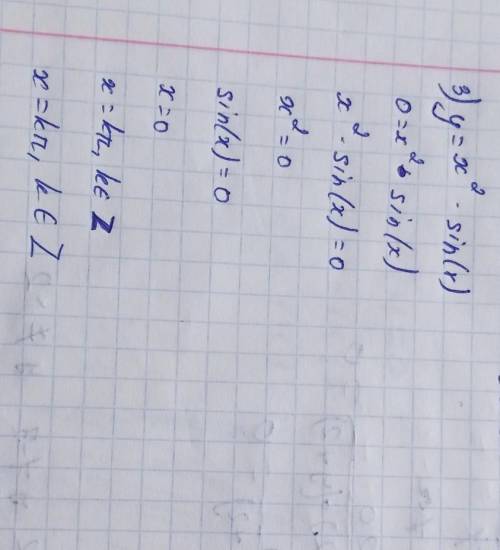 3) y = x² · sin(x)
0 = x² · sin(x)
x² · sin(x) = 0
x² = 0
sin(x) = 0
x = 0
x = kπ, k ∈ Z
x = kπ, k ∈ Z